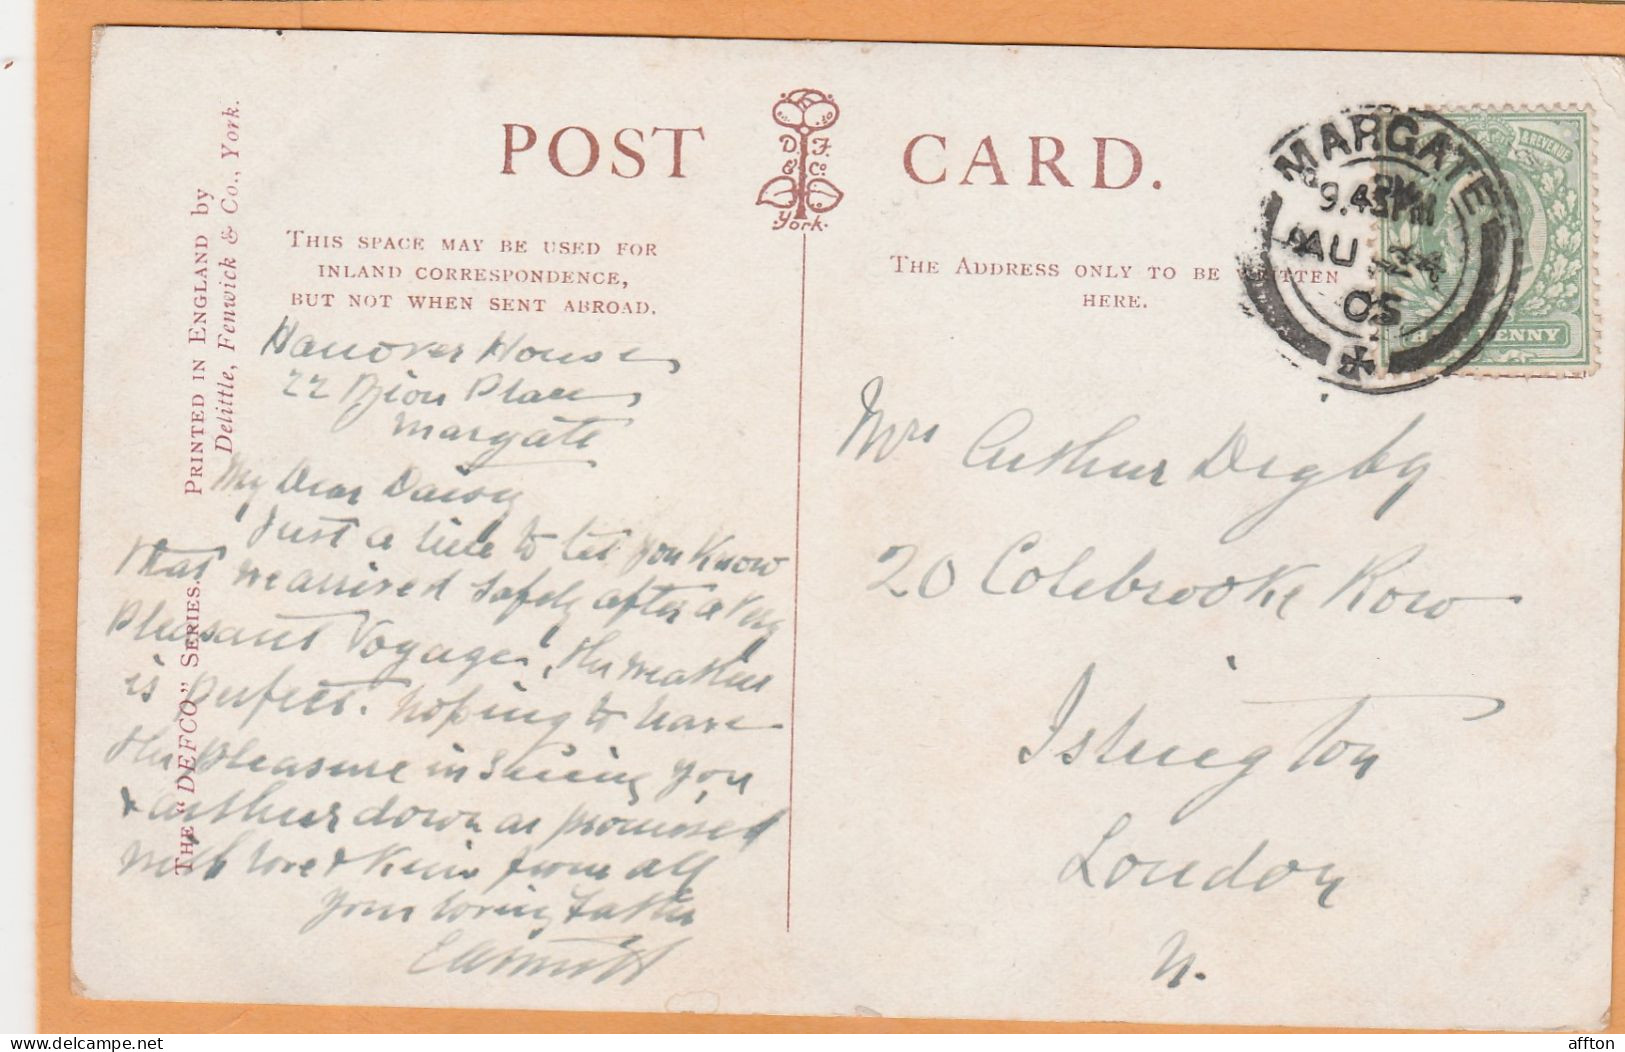 POST CARD.
D. F.
& Co.
York.
THIS SPACE MAY BE USED FOR
INLAND CORRESPONDENCE,
BUT NOT WHEN SENT ABROAD.
THE ADDRESS ONLY TO BE WRITTEN
HERE.
PRINTED IN ENGLAND by
Delittle, Fenwick & Co., York.
THE "DEFCO" SERIES.
MARGATE
9.45PM
AU 24
05
& REVENUE
HALFPENNY
Hanover House
22 Place
Margate
My Dear Daisy
Just a line to let you know
that we arrived safely after a very
pleasant Voyage. The weather
is perfect. hoping to have
the pleasure in seeing you
& Arthur down as promised
with love & Kisses from all
your loving Father
Mrs Arthur Digby
20 Colebrooke Row
Islington
London
N.
Delcampe.net
affton